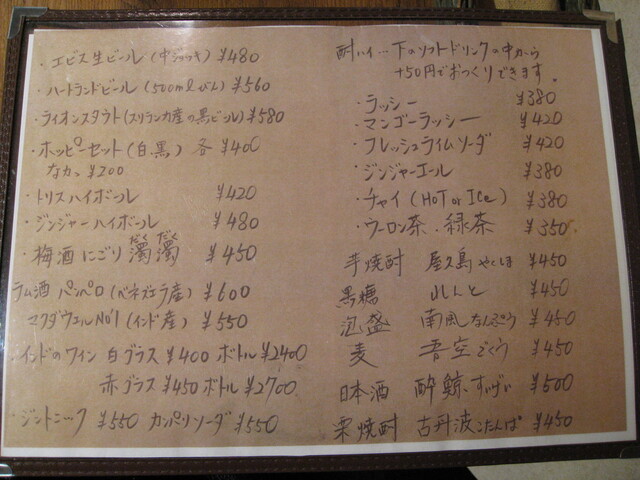 ・エビス生ビール(中ジョッキ) ¥480
・ハートランドビール(500mlびん) ¥560
・ライオンスタウト(スリランカ産の黒ビール) ¥580
・ホッピーセット(白、黒) 各 ¥400
なか ¥200
・トリスハイボール ¥420
・ジンジャーハイボール ¥480
・梅酒 にごり 濁濁 ¥450
だく だく
ラム酒 パンペロ(ベネズエラ産) ¥600
マクダウェルNo1(インド産) ¥550
・インドのワイン 白 グラス ¥400 ボトル ¥2400
赤 グラス ¥450 ボトル ¥2700
・ジントニック ¥550 カンパリソーダ ¥550
酎ハイ…下のソフトドリンクの中から
+50円でおつくりできます。
・ラッシー ¥380
・マンゴーラッシー ¥420
・フレッシュライムソーダ ¥420
・ジンジャーエール ¥380
・チャイ(HOT or ICe) ¥380
・ウーロン茶、緑茶 ¥350
芋焼酎 屋久島 やくしま ¥450
黒糖 れんと ¥450
泡盛 南風 なんぷう ¥450
麦 吾空 ごくう ¥450
日本酒 酔鯨 すいげい ¥500
栗焼酎 古丹波 こたんば ¥450